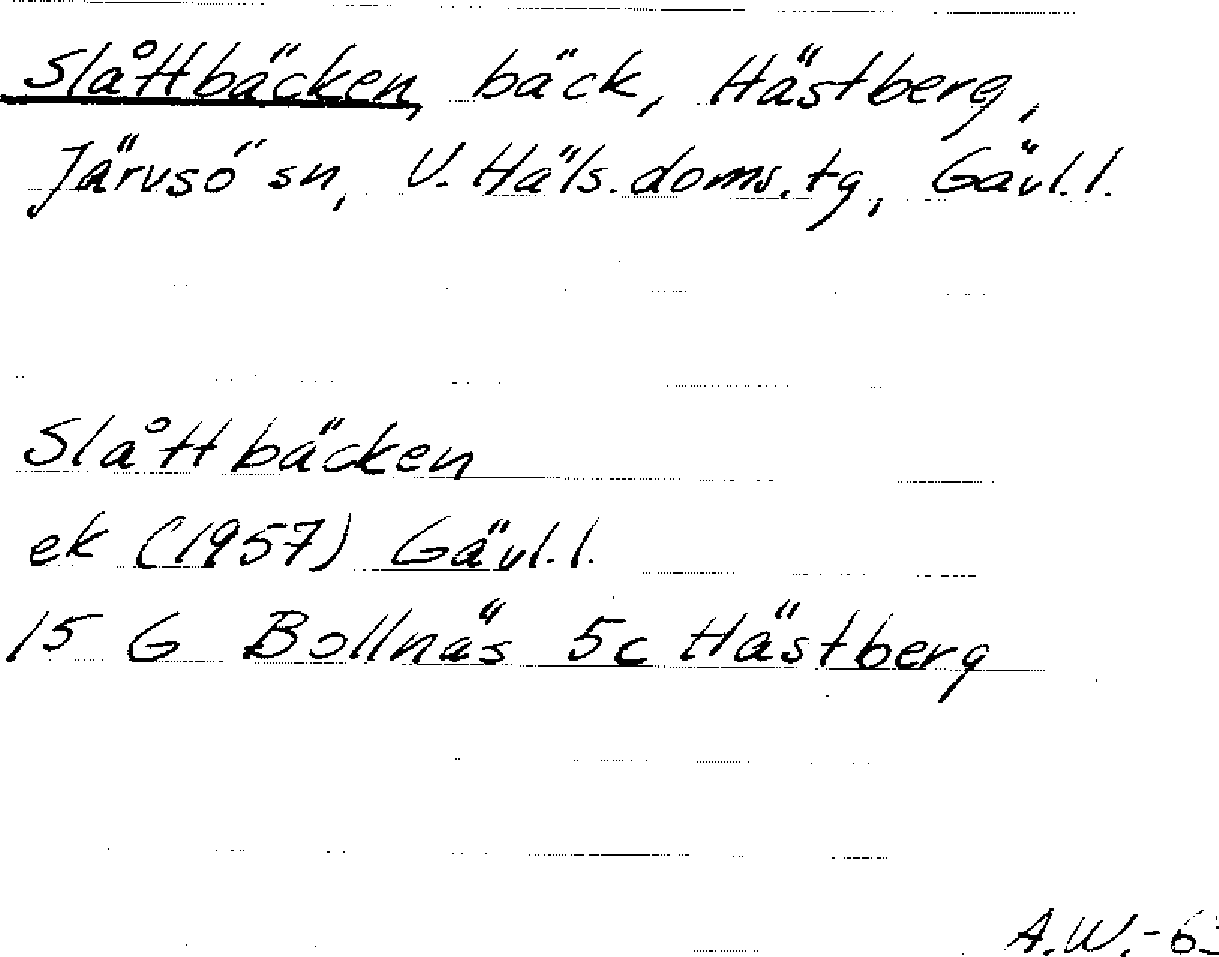 Slåttbäcken, bäck, Hästberg,
Järvsö sn, V. Häls. doms. tg, Gävl. l.
Slåttbäcken
ek (1957) Gävl. l.
15 G Bollnäs 5c Hästberg
A.W.-6